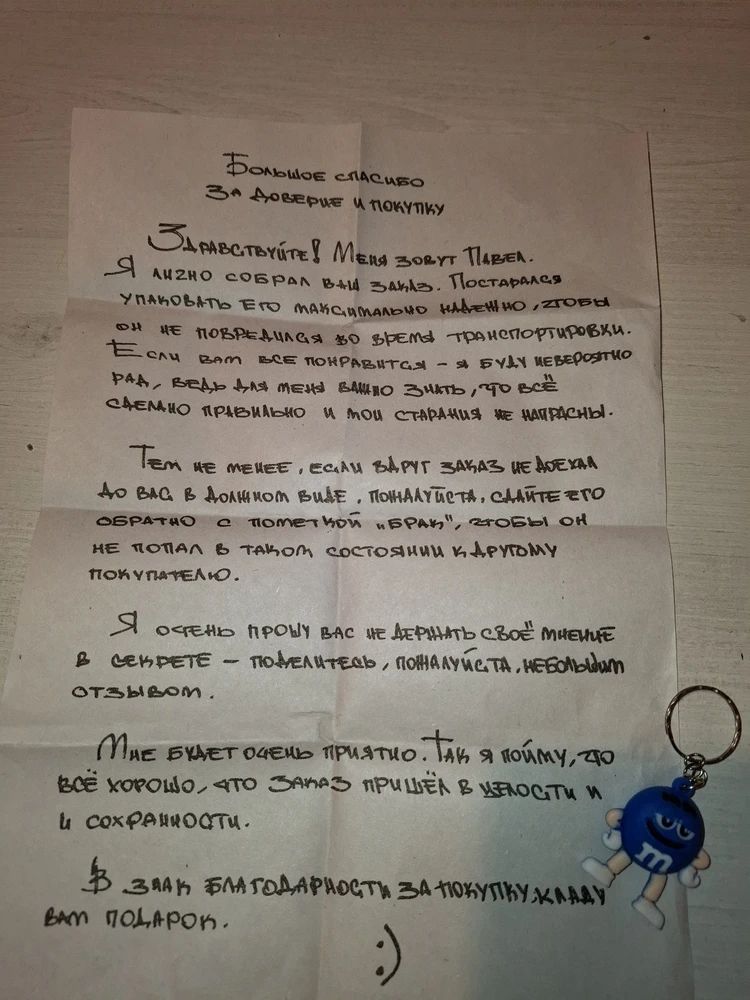 Большое спасибо
за доверие и покупку
Здравствуйте! Меня зовут Павел.
Я лично собрал ваш заказ. Постарался
упаковать его максимально надежно, чтобы
он не повредился во время транспортировки.
Если вам все понравится - я буду невероятно
рад, ведь для меня важно знать, что всё
сделано правильно и мои старания не напрасны.
Тем не менее, если вдруг заказ не доехал
до вас в должном виде, пожалуйста, сдайте его
обратно с пометкой „брак", чтобы он
не попал в таком состоянии к другому
покупателю.
Я очень прошу вас не держать своё мнение
в секрете - поделитесь, пожалуйста, небольшим
отзывом.
Мне будет очень приятно. Так я пойму, что
всё хорошо, что заказ пришёл в целости и
и сохранности.
В знак благодарности за покупку, кладу
вам подарок.
:)
m